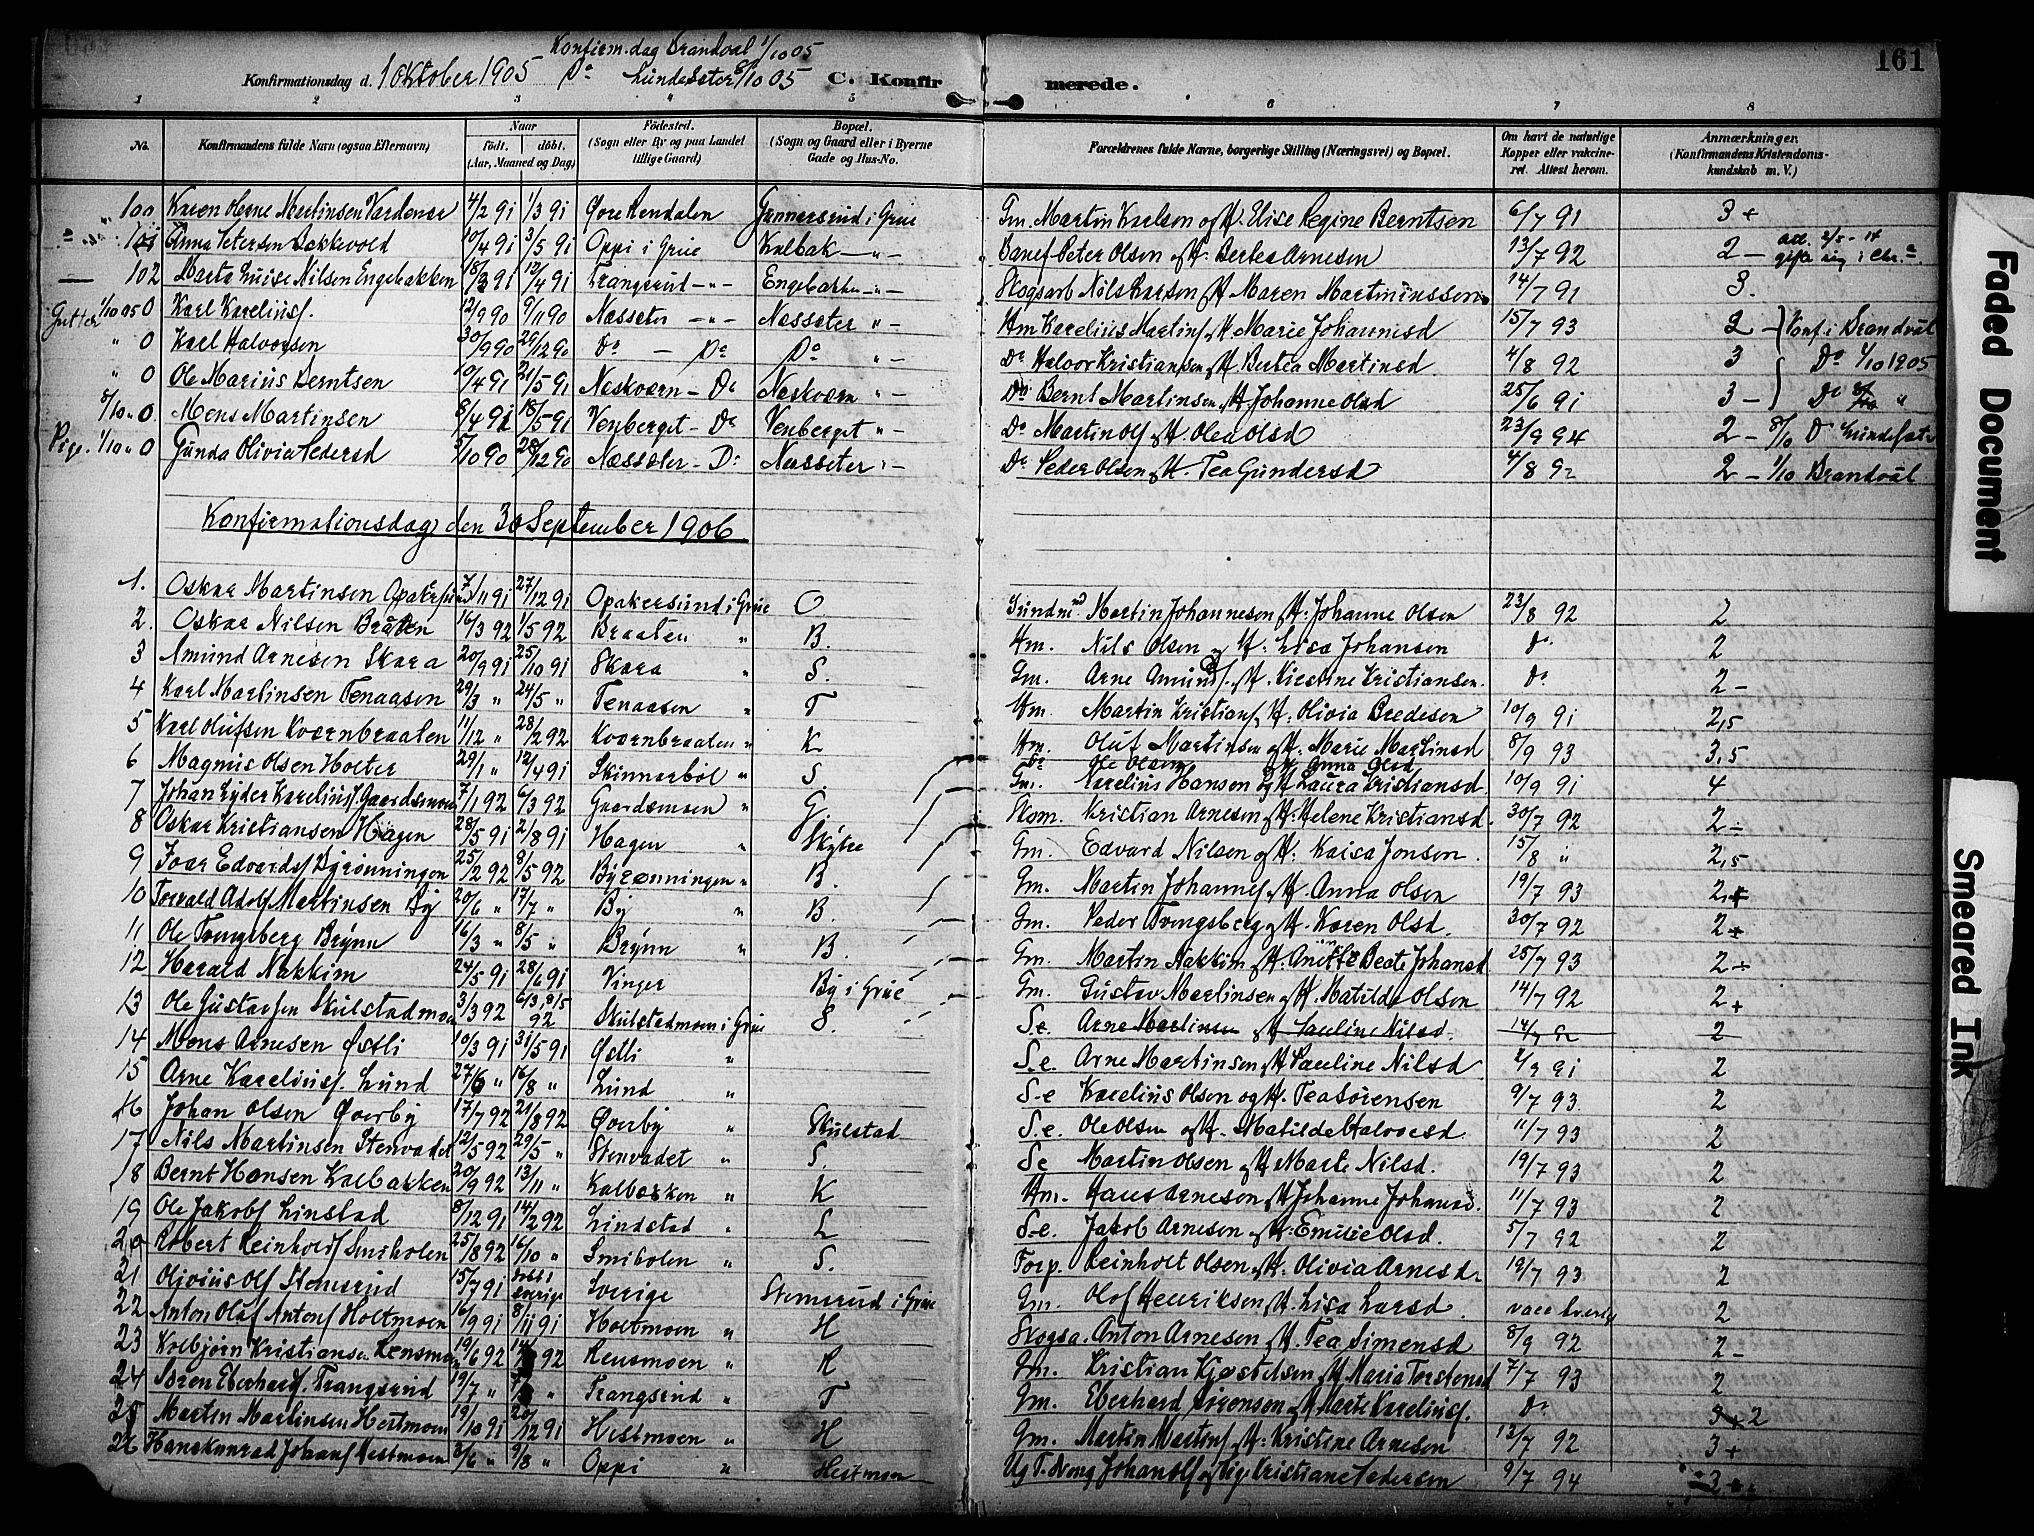 161
Konfirm.dag Brandval 1/10 05
Konfirmationsdag d. 1 Oktober 1905 Do Lundesæter 8/10 05 C. Konfirmerede.
1 2 3 4 5 6 7 8
No. Konfirmandens fulde Navn (ogsaa Efternavn) Naar født. døbt. (Aar, Maaned og Dag) Fødested. (Sogn eller By og paa Landet tillige Gaard) Bopæl. (Sogn og Gaard eller i Byerne Gade og Hus-No. Forældrenes fulde Navne, borgerlige Stilling (Næringsvei) og Bopæl. Om havt de naturlige Kopper eller vakcineret. Attest herom. Anmærkninger. (Konfirmandens Kristendomskundskab m. V.)
100 Karen Oline Martinsen Vardener 4/2 91 1/3 91 Øvre Rendalen Gunnersrud i Grue Gm. Martin Karlsen og H. Elise Regine Berntsen 6/7 91 3+
101 Anna Petersen Bekkevold 10/4 91 3/5 91 Oppi i Grue Kalbak —"— Peter Olsen og H. Bertea Arnesen 13/7 92 2 –
102 Marta Luise Nilsen Engebakken 18/3 91 12/4 91 Trangsrud —"— Engebakken —"— Skogsarb Nils Larsen og H Maren Martinussen 14/7 91 3.
Gutter 1/10 05 0 Karl Kareliusf. 12/9 90 9/11 90 Næsseter —"— Næsseter "— Hm Karelius Martinsf. og H. Marie Johannesd 15/7 93 2 – Konf. i Brandval
" 0 Karl Halvorsen 30/9 90 29/12 90 Do — Do Do "— Do Halvor Kristiansen og H Bertea Martinsd 4/8 92 3 Do 1/10 1905
" 0 Ole Marius Berntsen 10/4 91 21/5 91 Næskværn – Do Næskværn "— Do Bernt Martinsen og H. Johanne Olsd 25/6 91 3 – Do "
8/10 " 0. Mons Martinsen 8/4 91 18/5 91 Venberget – Do Venberget "— Do Martin Olsf og H. Olea Olsd 23/9 94 2 – 8/10 Do Lundesæter
Pige. 1/10 " 0 Gunda Olivia Pedersd 5/10 90 28/12 90 Næsseter – Do Næsseter "— Do Peder Olsen og H. Tea Gundersd 4/8 92 2 – 1/10 Brandval
Konfirmationsdag den 30 September 1906
1. Oskar Martinsen Opakersund 7/11 91 27/12 91 Opakersund i Grue O Sundmd Martin Johannesen og H. Johanne Olsen 23/8 92 2
2. Oskar Nilsen Bråten 16/3 92 1/5 92 Braaten " B. Hm. Nils Olsen og H. Lisa Johansen Do 2
3 Amund Arnesen Skara 20/9 91 25/10 91 Skara " S. Gm. Arne Amundsf. og H. Kiestine Kristiansen. Do 2 –
4 Karl Martinsen Tenaasen 29/3 " 24/5 " Tenaasen " T Hm. Martin Kristiansf og H. Olivia Bredesen 10/9 91 2,5
5 Karl Olufsen Kværnbraaten 11/12 " 28/2 92 Kværnbraaten " K Hm. Oluf Martinsen og H. Marie Martinsd 8/9 93 3,5
6 Magnus Olsen Holter 29/1 " 12/4 91 Skinnarbøl " S. Do Ole Olsen og H Anna Olsd
7 Johan Lyder Kareliusf. Gaardsmoen 7/1 92 6/3 92 Gaardsmoen " G. Gm. Karelius Hansen og H Laura Kristiansd. 10/9 91 4
8 Oskar Kristiansen Hagen 28/5 91 2/8 91 Hagen " Skybre Skom. Kristian Arnesen og H. Helene Kristiansd. 30/7 92 2 –
9 Ivar Edvardsf Byrønningen 25/2 92 8/5 92 Byrønningen " B. Gm. Edvard Nilsen og H. Kaisa Jonsen. 15/8 " 2,5
10 Torvald Adolf Martinsen By 20/6 " 17/7 " By " B. Gm. Martin Johannesf og H Anna Olsen 19/7 93 2+
11 Ole Tvengsberg Brynn 16/3 " 8/5 " Brynn " B. Gm. Peder Tvengsberg og H. Karen Olsd. 30/7 92 2+
12 Harald Nakkim 24/5 91 28/6 91 Vinger By i Grue Gm. Martin Nakkim og H. Anette Beate Johansd 25/7 93 2 –
13 Ole Gustavsen Skulstadmoen 3/3 92 6/3, 8/5 92 Skulstadmoen i Grue S. Gm. Gustav Martinsen og H. Matilde Olsen 14/7 92 2+
S.e. Arne Martinsen og H Pauline Nilsd. 2
14 Mons Arnesen Østli 10/3 91 31/5 91 Østli " S.e. Arne Martinsen og H Pauline Nilsd. 2/9 91 2
15 Arne Kareliusf. Lund 27/6 " 16/8 " Lund " S-e Karelius Olsen og H. Tea Sørensen 9/7 93. 2
16 Johan Olsen Øverby 17/7 92 21/8 92 Øverby " Skulstad S.e. Ole Olsen og H. Matilde Halvorsd. 11/7 93 2
17 Nils Martinsen Stenvadet 12/5 92 29/5 " Stenvadet " S. Se Martin Olsen og H Marte Nilsd. 19/7 93 2
18 Bernt Hansen Kalbakken 20/9 92 13/11 " Kalbakken " K Hm. Hans Arnesen og H Johanne Johansd. 11/7 93 2
19 Ole Jakobsf Linstad 8/12 91 14/2 92 Lindstad " L S-e. Jakob Arnesen og H. Emilie Olsd. 5/7 92 2
20 Robert Reinholdsf Smiholen 25/8 92 16/10 " Smiholen " S. Torp. Reinholt Olsen og H. Olivia Arnesd. 19/7 93 2
21 Olivius Olsf Stemsrud 15/7 91 døbt i Sverige Sverige Stemsrud i Grue Gm. Olof Henriksen og H. Lisa Larsd. vacc Sverige 2
22 Anton Oluf Antonsf Holtmoen 16/9 91 8/11 91 Holtmoen " H Skogsa. Anton Arnesen og H. Tea Simensd. 8/9 92 2 –
23 Kolbjørn Kristiansen Rensmoen 19/6 92 92 Rensmoen " R Gm. Kristian Kjøstelsen og H Maria Torstensd 7/7 93 2
24 Søren Eberhardsf. Trangsrud 19/7 " " Trangsrud " T Gm. Eberhard Sørensen og H Marte Kareliusf. Do 2
25 Martin Martinsen Hestmoen 19/10 91 20/12 91 Hestmoen " H Gm. Martin Martinsf og H. Kristine Arnesen 13/7 92 3+
26 Hans Konrad Johansf Hestmoen 3/6 " 9/8 " Oppi " Hestmoen Ug T. Dreng Johan Olsf og Pige Kristiane Pedersen 9/7 94 3+
Faded Document
Smeared Ink